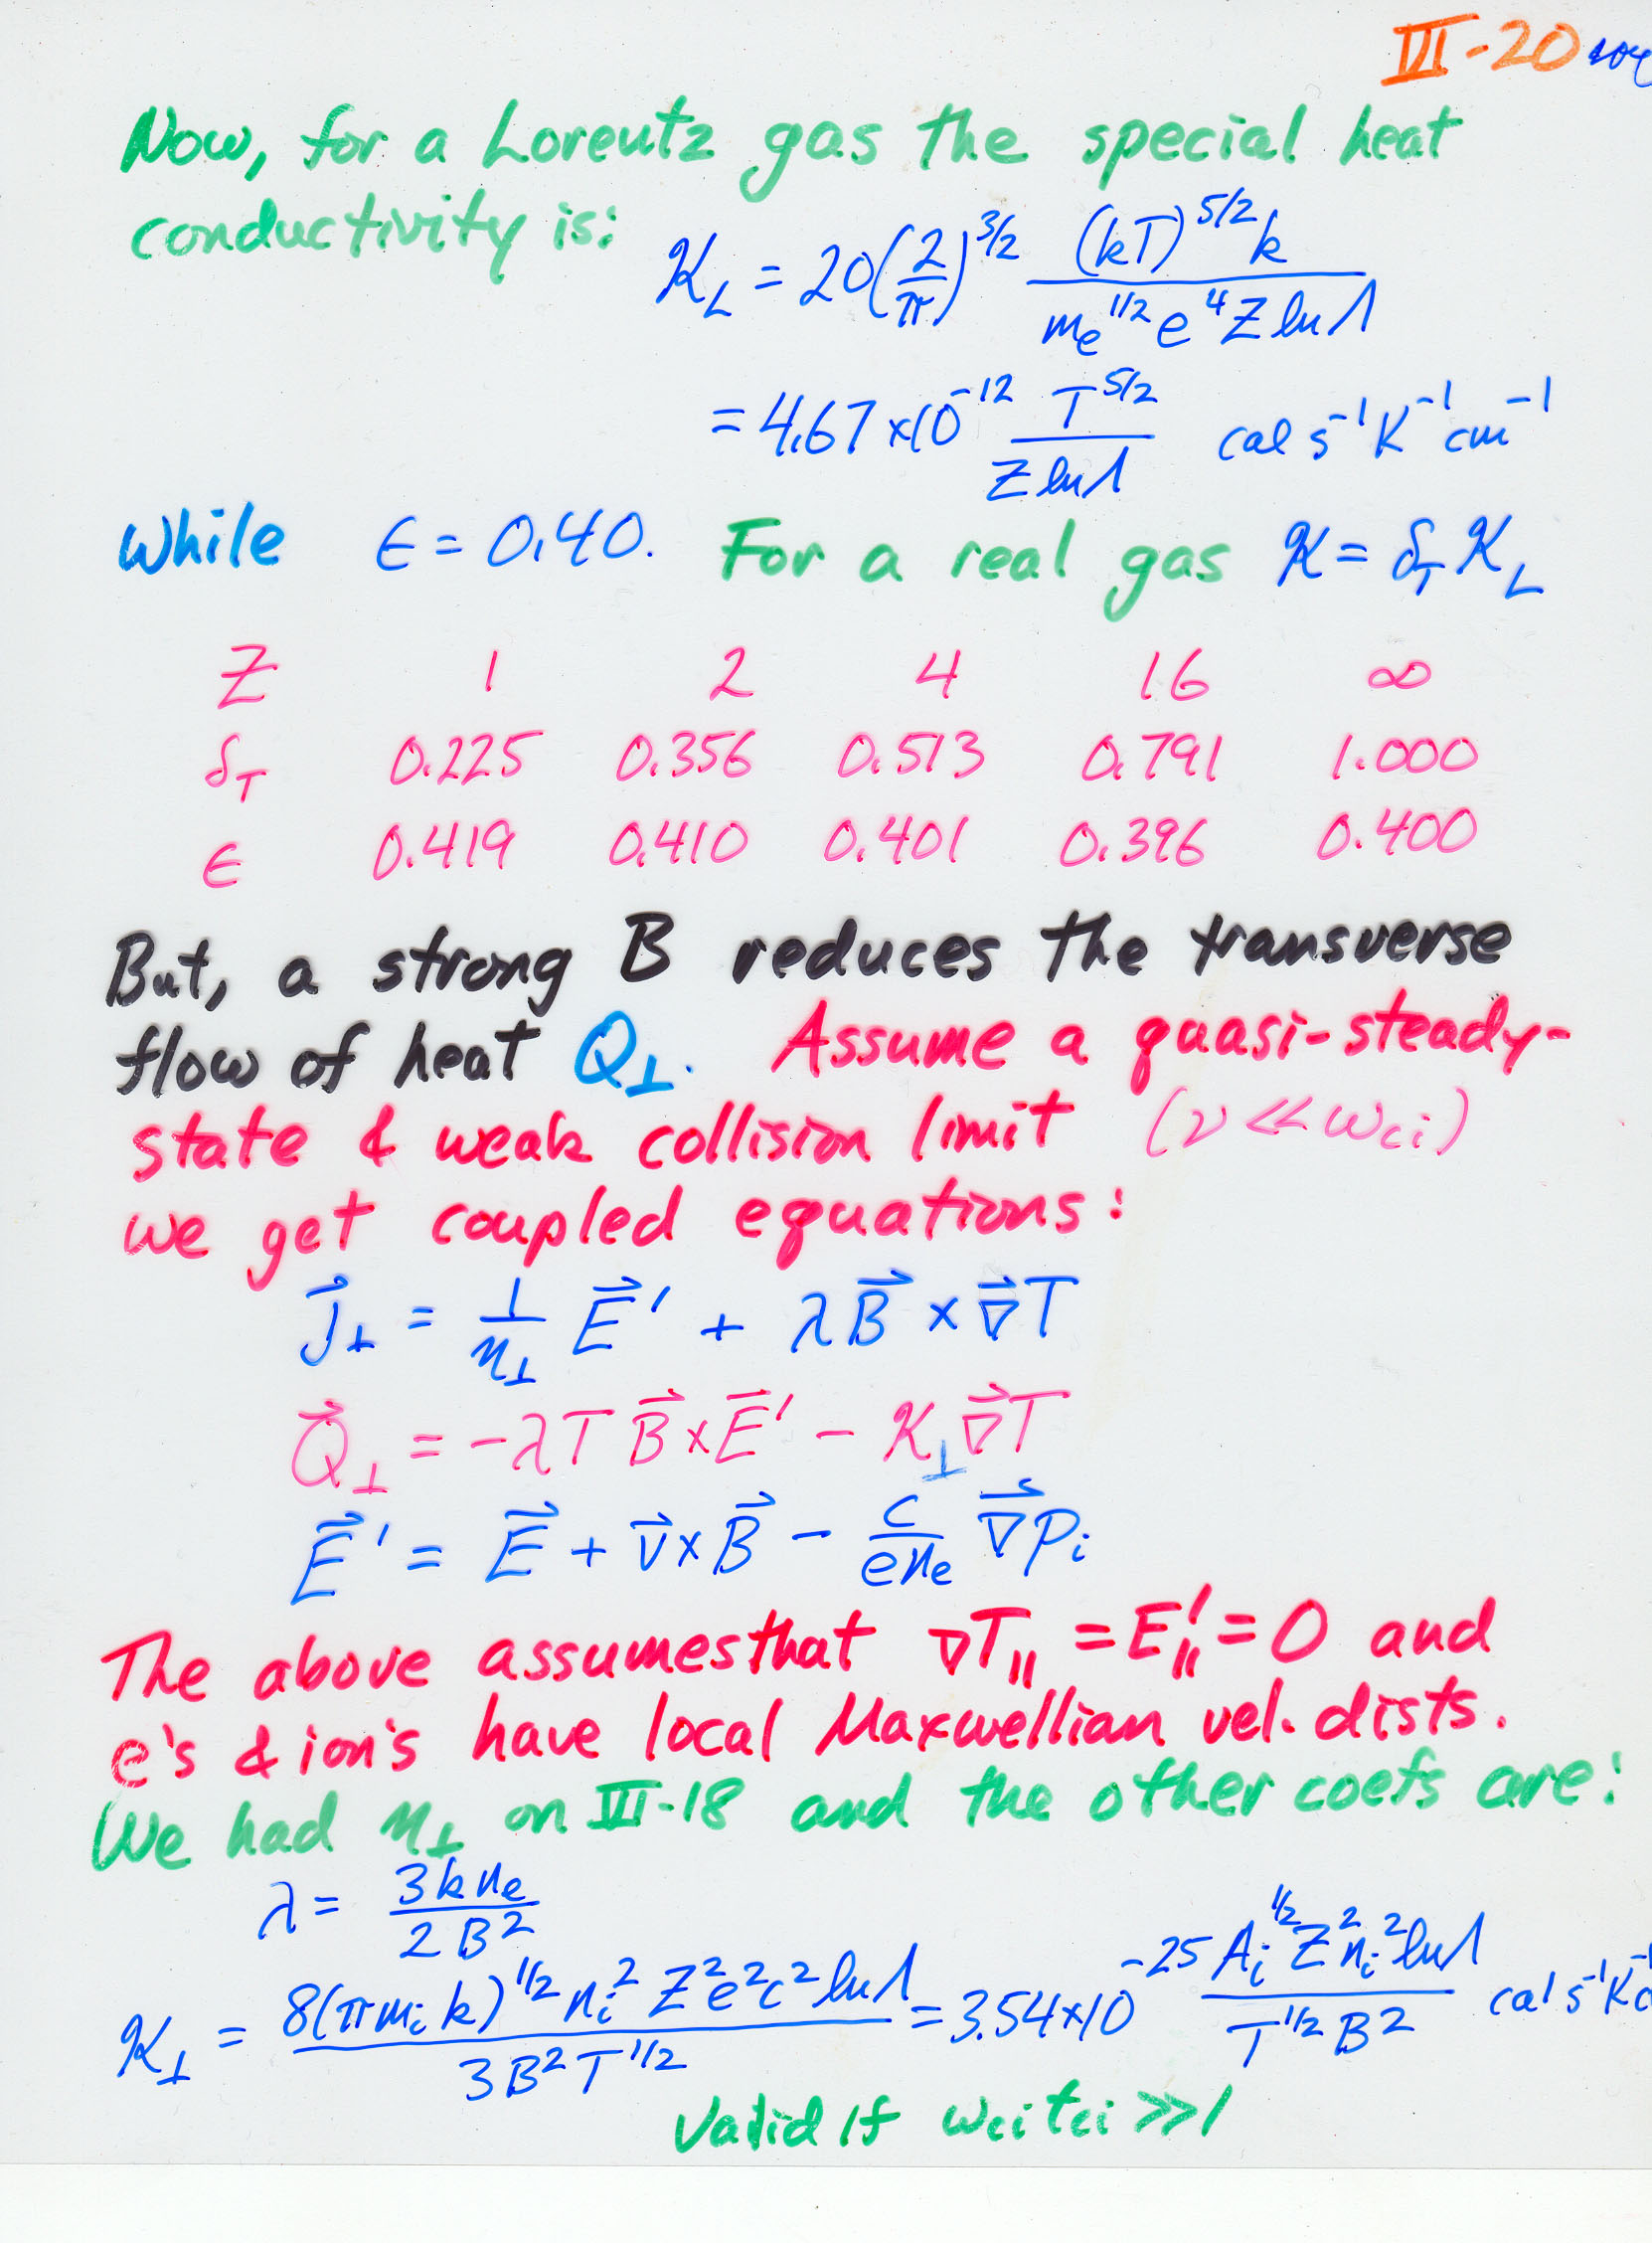 VII-20
Now, for a Lorentz gas the special heat
conductivity is:
𝒦_L = 20(2/π)^3/2 (kT)^5/2 k / m_e^1/2 e^4 Z ln Λ
= 4.67 × 10^-12 T^5/2 / Z ln Λ cal s^-1 K^-1 cm^-1
While ϵ = 0.40. For a real gas 𝒦 = δ_T 𝒦_L
Z 1 2 4 16 ∞
δ_T 0.225 0.356 0.513 0.791 1.000
ϵ 0.419 0.410 0.401 0.396 0.400
But, a strong B reduces the transverse
flow of heat Q_⊥. Assume a quasi-steady-
state & weak collision limit (ν << ω_ci)
we get coupled equations:
J⃗_⊥ = 1/η_⊥ E⃗' + λB⃗ × ∇⃗T
Q⃗_⊥ = -λT B⃗×E⃗' - 𝒦_⊥ ∇⃗T
E⃗' = E⃗ + v⃗×B⃗ - c/en_e ∇⃗p_i
The above assumes that ∇T_|| = E'_|| = 0 and
e's & ion's have local Maxwellian vel. dists.
We had η_⊥ on III-18 and the other coefs are:
λ = 3kn_e / 2B^2
𝒦_⊥ = 8(πm_i k)^1/2 n_i^2 Z^2 e^2 c^2 ln Λ / 3B^2 T^1/2 = 3.54×10^-25 A_i^1/2 Z^2 n_i^2 ln Λ / T^1/2 B^2 cal s^-1 K^-1 c
Valid if ω_ci t_ci >> 1